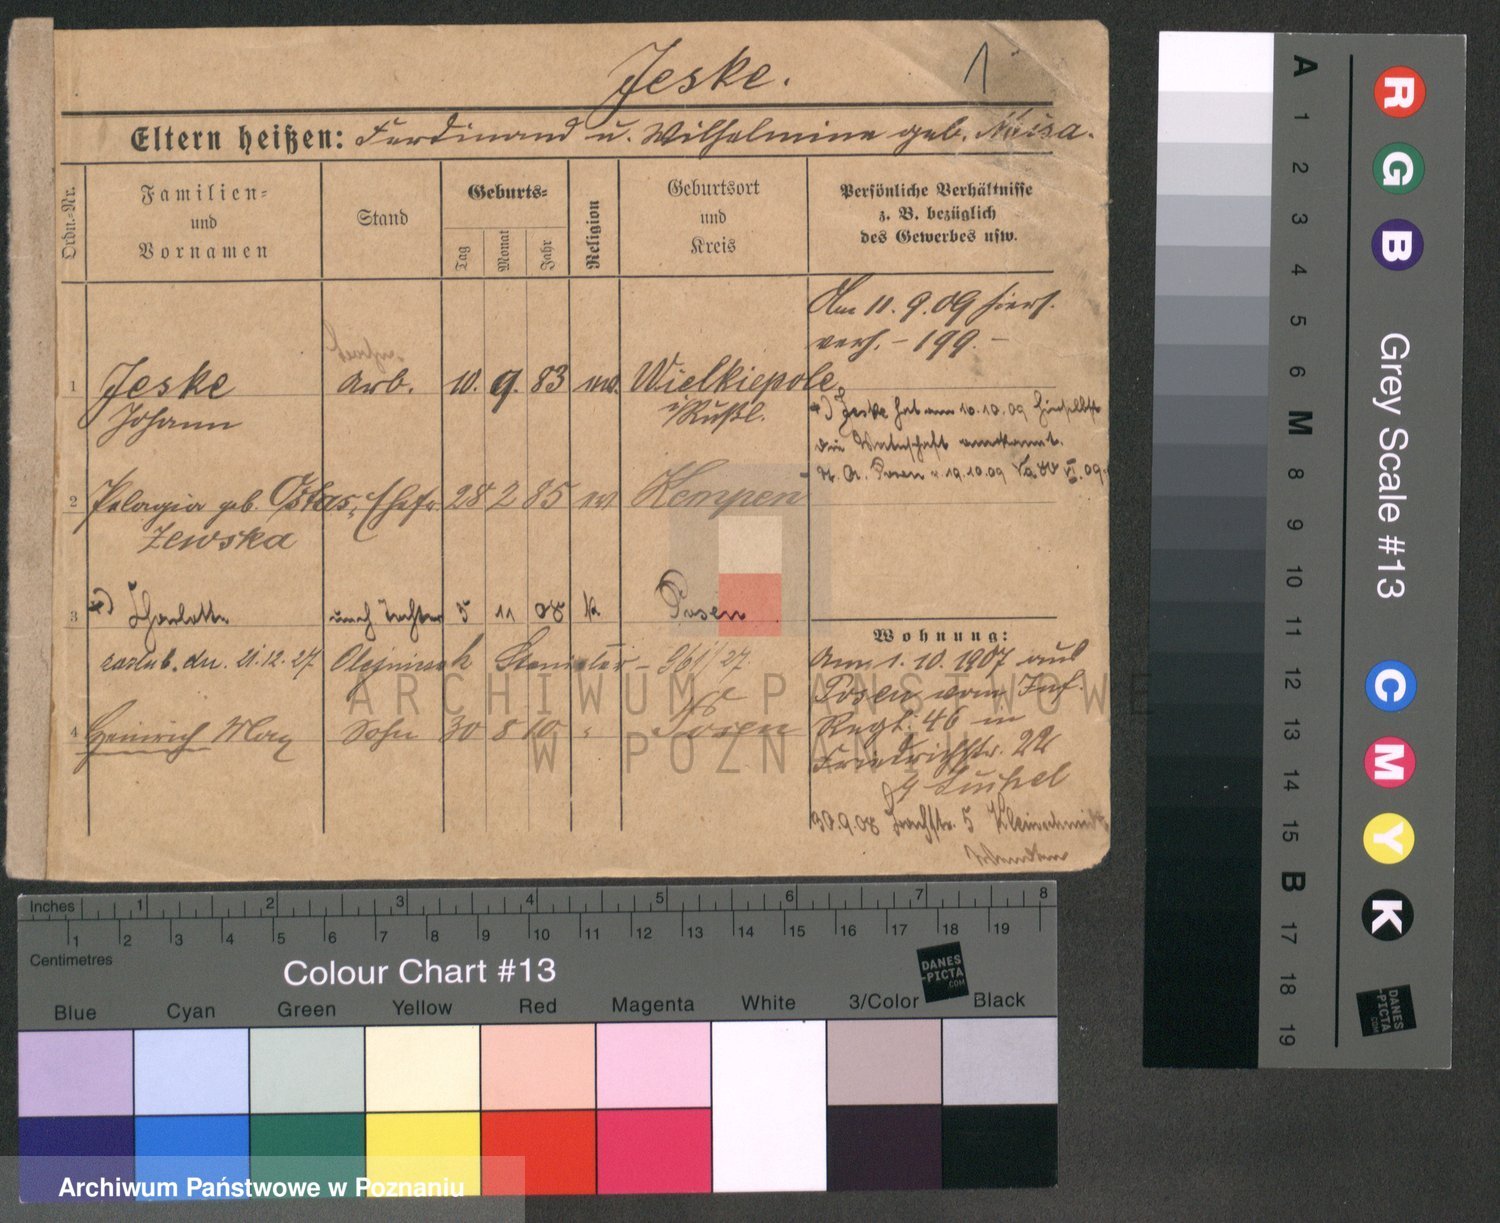 Jeske. 1
Eltern heißen: Ferdinand u. Wilhelmine geb.
Ordn.-Nr.
Familien-
und
Vornamen
Stand
Geburts-
Tag
Monat
Jahr
Religion
Geburtsort
und
Kreis
Persönliche Verhältnisse
z. B. bezüglich
des Gewerbes usw.
Am 11.9.09 hierf.
verh. - 199. -
1 Jeske Arb. 10. 9. 83 ev. Wielkiepole
Johann i/Rußl.
*) Jeske hat am 10.10.09
die anerkannt.
St. A. Posen v. 19.10.09
2 Pelagia geb. Ostas- Ehefr 28 2 85 Kempen
zewska
3 *) Charlotte Tochter 5 11 08 k Posen
zaślub. dn. 21.12.27 Olejniczak Stanisław - 961/27.
4 Heinrich Max Sohn 30 8 10 " Posen
Wohnung:
Am 1.10.1907 aus
Posen vom Inf.
Regt. 46 in
Friedrichstr. 22
30.9.08 5 Kleinschmidt
ARCHIWUM PAŃSTWOWE
W POZNANIU
Inches 1 2 3 4 5 6 7 8
1 2 3 4 5 6 7 8 9 10 11 12 13 14 15 16 17 18 19
Centimetres
Colour Chart #13
DANES
-PICTA
.COM
Blue Cyan Green Yellow Red Magenta White 3/Color Black
Archiwum Państwowe w Poznaniu
A 1 2 3 4 5 6 M 8 9 10 11 12 13 14 15 B 17 18 19
R G B
Grey Scale #13
C M Y K
DANES
-PICTA
.COM